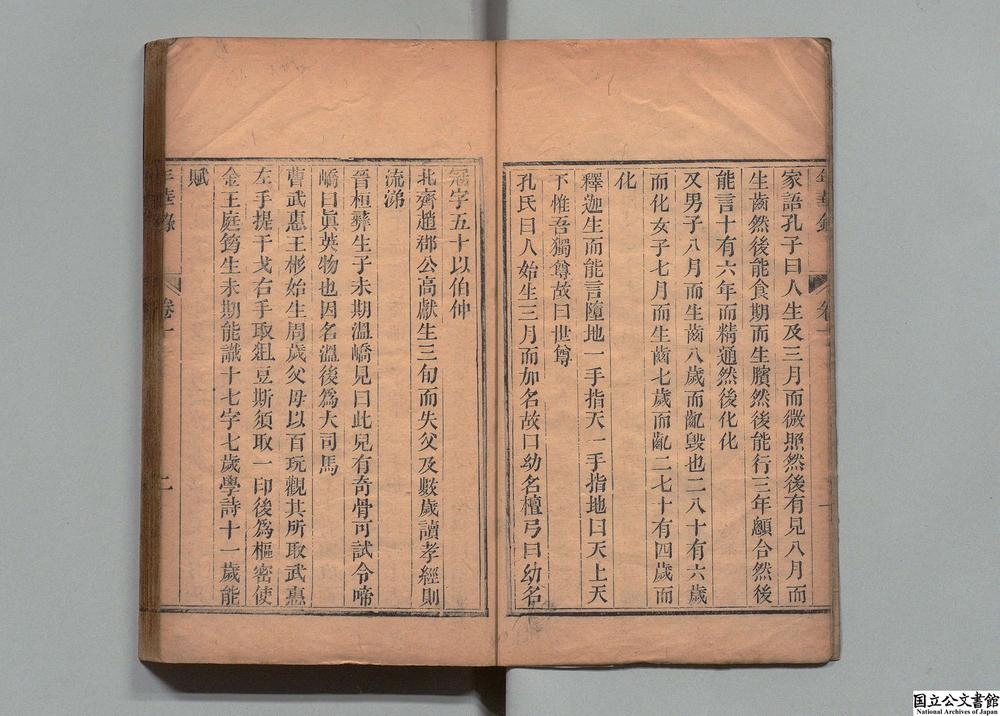 年華錄
卷一
一
家語孔子曰人生及三月而微照然後有見八月而
生齒然後能食期而生臏然後能行三年顖合然後
能言十有六年而精通然後化化
又男子八月而生齒八歲而齔毀也二八十有六歲
而化女子七月而生齒七歲而齔二七十有四歲而
化
釋迦生而能言墮地一手指天一手指地曰天上天
下惟吾獨尊故曰世尊
孔氏曰人始生三月而加名故曰幼名檀弓曰幼名
冠字五十以伯仲
北齊趙郡公高獻生三旬而失父及數歲讀孝經則
流涕
晉桓彝生子未期溫嶠見曰此兒有奇骨可試令啼
嶠曰眞英物也因名溫後爲大司馬
曹武惠王彬始生周歲父母以百玩觀其所取武惠
左手提干戈右手取俎豆斯須取一印後爲樞密使
金王庭筠生未期能識十七字七歲學詩十一歲能
賦
年華錄
卷一
二
国立公文書館
National Archives of Japan